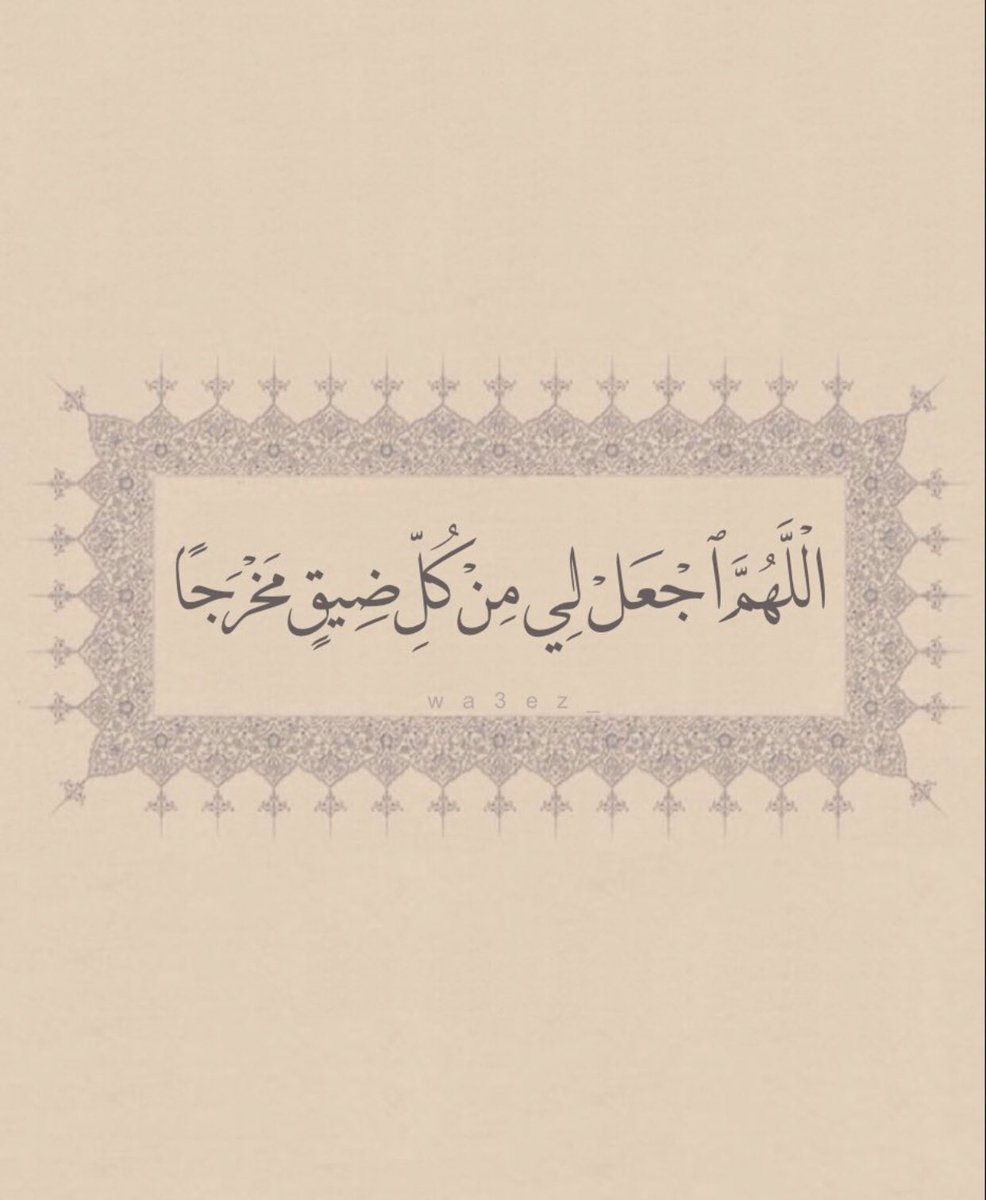 اللَّهُمَّ ٱجْعَلْ لِي مِنْ كُلِّ ضِيقٍ مَخْرَجًا
wa3ez_